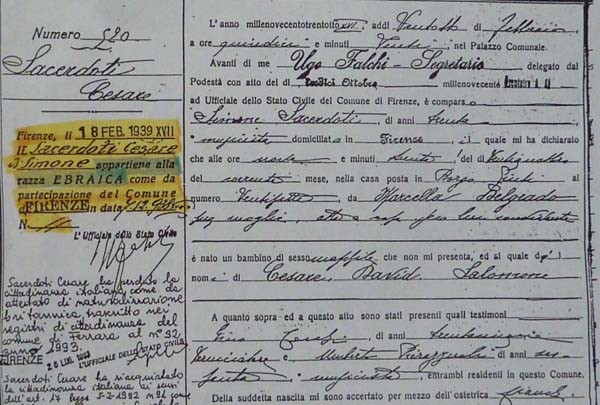 Numero 520
Sacerdoti
Cesare
Firenze, li 18 FEB. 1939 XVII
Il Sacerdoti Cesare
di Simone appartiene alla
razza EBRAICA come da
partecipazione del Comune
di FIRENZE in data
N.
L'Ufficiale dello Stato Civile
Sacerdoti Cesare ha perduto la
cittadinanza italiana come da
attestato di naturalizzazione
britannica, trascritto nei
registri di cittadinanza del
comune di Ferrara al n° 32
anno 1993.
FIRENZE 26 LUG. 1993 L'UFFICIALE DELLO STATO CIVILE
Sacerdoti Cesare ha riacquistato
la cittadinanza italiana ai sensi
dell'art. 17 legge 5-2-1992 n° 91 come
L'anno millenovecentotrentotto XVI, addì Ventotto di febbraio
a ore quindici e minuti venti, nel Palazzo Comunale.
Avanti di me Ugo Falchi - Segretario delegato dal
Podestà con atto del dì Ottobre millenovecento
ad Ufficiale dello Stato Civile del Comune di Firenze, è comparso
Simone Sacerdoti, di anni trenta
impiegato domiciliato in Firenze, il quale mi ha dichiarato
che alle ore e minuti del ventiquattro
del corrente mese, nella casa posta in Borgo Pinti al
numero, da Marcella Belgrado
sua moglie, con convivente
è nato un bambino di sesso maschile che non mi presenta, ed al quale dà i
nomi di Cesare David Salomone
A quanto sopra ed a questo atto sono stati presenti quali testimoni
Gino di anni
Verniciatore e Umberto di anni
impiegato, entrambi residenti in questo Comune.
Della suddetta nascita mi sono accertato per mezzo dell'ostetrica